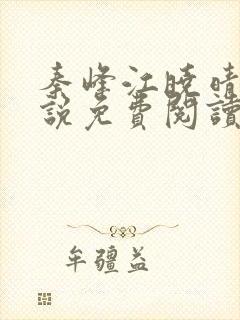 秦峰江曉晴
說免費閱讀
牟疆益